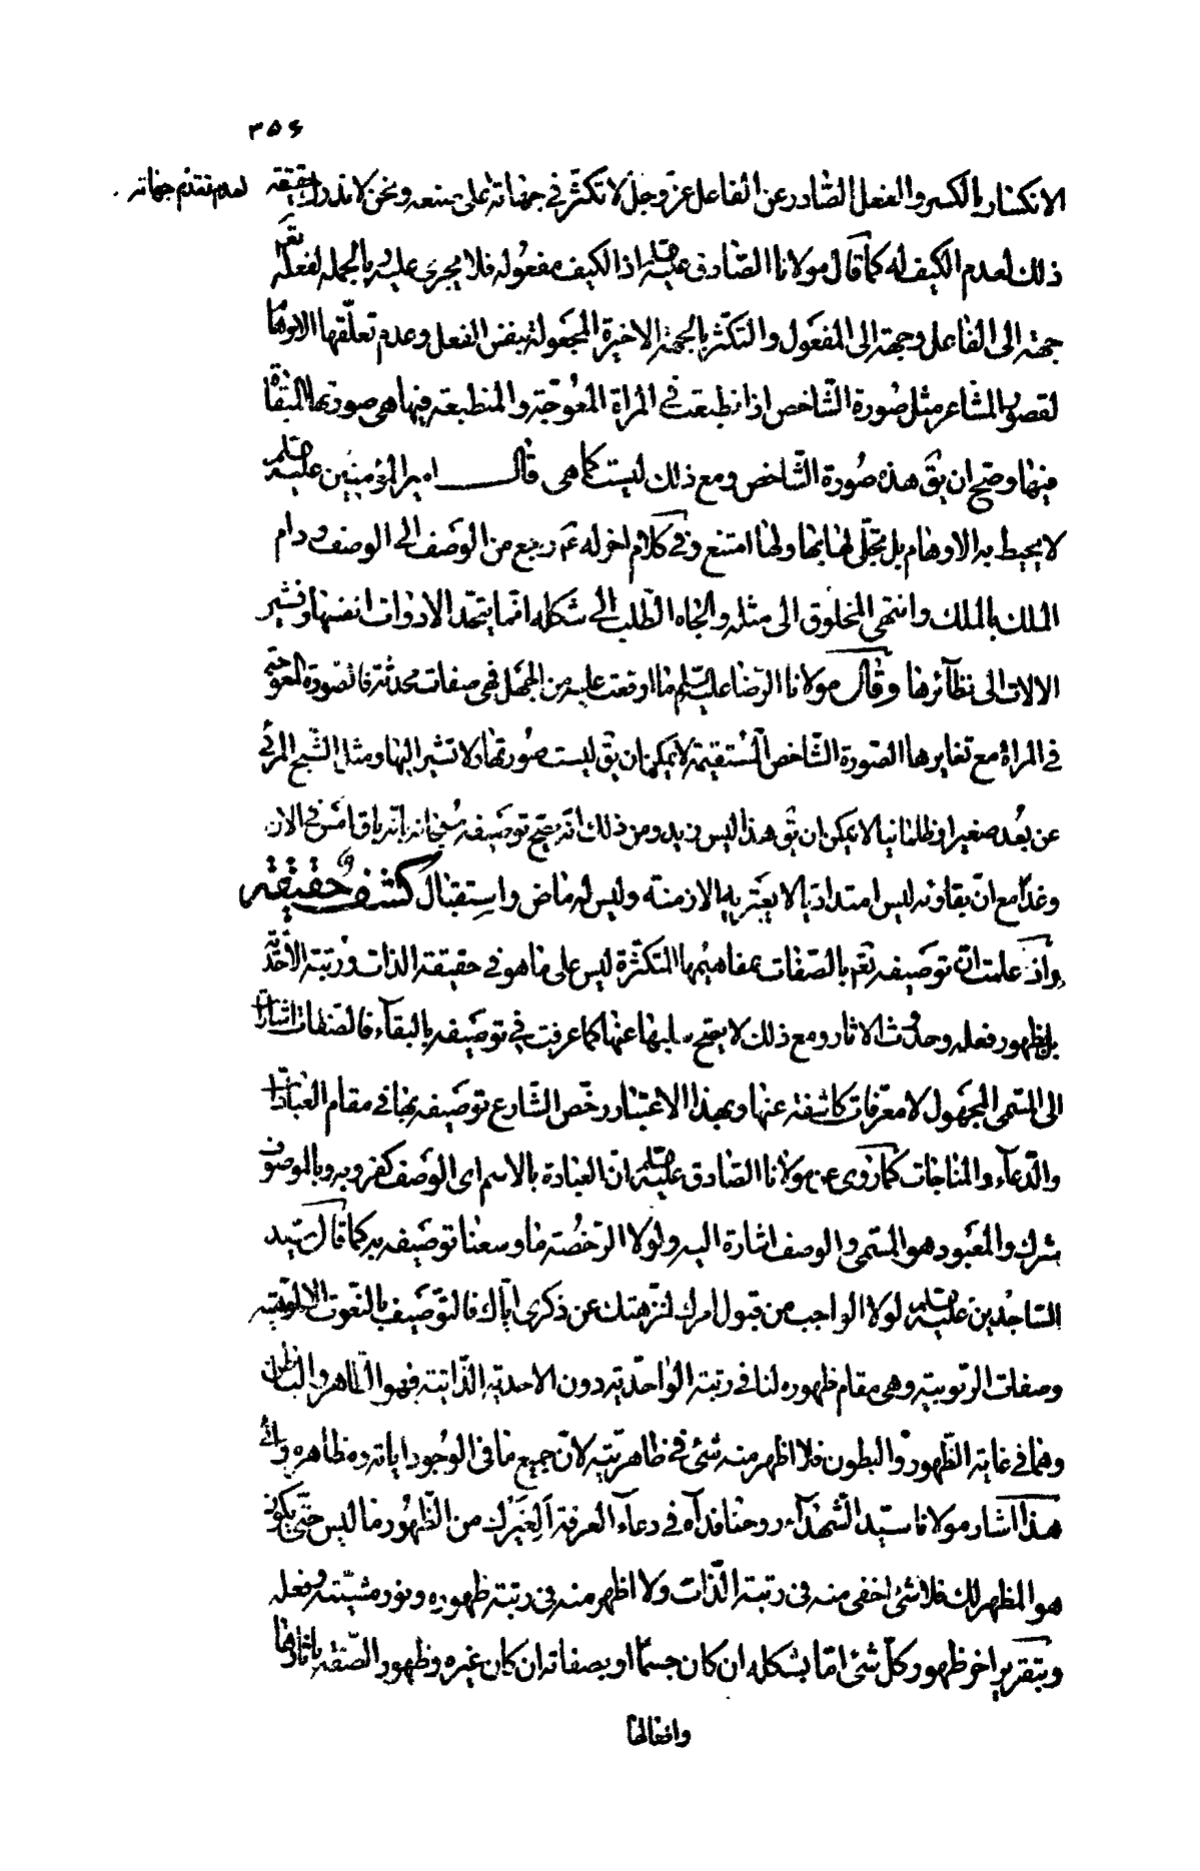 ۳۵۶
الانكسار بالكسر والفعل الصّادر عن الفاعل عزّ وجلّ لا تكثّر فى جهاته اعلى منعه ونحن لا ندرك حقيقة لعدم تقدّم جهاته
ذلك لعدم الكيف له كما قال مولانا الصّادق عليه السلم اذ الكيف مفعوله فلا يجرى عليه وبالجملة لفعله تعم
جهة الى الفاعل وجهة الى المفعول والتكثّر بالجهة الاخيرة المجعولة بنفس الفعل وعدم تعلّقها الاوهام
لقصور المشاعر مثل صورة الشّاخص اذ انطبعت فى المراة المعوّجة والمنطبعة فيها هى صورتها الملقاة
فيها وصحّ ان يق هذه صُورة الشّاخص ومع ذلك ليست كما هى قال امير المؤمنين عليه السلم
لا يحيط به الاوهام بل تجلّى لها بها ولها امتنع وفى كلام اخر له عم رجع من الوصف الى الوصف ودام
الملك بالملك وانتهى المخلوق الى مثله والجاه الطّلب الى شكله انّما يتحدّ الادوات انفسها وتشير
الالات الى نظآئرها وقال مولانا الرّضا عليه السّلم ما اوقعت عليه من الجهل فهى صفات محدثة فالصّورة المعوجّة
فى المراة مع تغايرها الصّورة الشّاخص المُستقيمة لا يمكن ان يق ليست صورتها ولا تشير اليها ومثل الشّبح المرئى
عن بُعد صغيرا وظلمانيا لا يمكن ان يق هذا ليس زيد ومن ذلك انّه يصحّ توصيفه سُبحانه بانّه باق امس والان
وغدا مع انّ بقاؤه ليس امتداديا لا يعتريه الازمنة وليس له ماض واستقبال كشف حقيقة
واذ علمت انّ توصيفه تعم بالصّفات بمفاهيمها التكثّرة ليس على ما هو فى حقيقة الذات ورتبة الأحديّة
بل بظهور فعله وحدُوث الاثار ومع ذلك لا يصحّ سلبها عنها كما عرفت فى توصيفه بالبقآء فالصّفات اشارات
الى المسمّى المجهول لا معرّفات كاشفة عنها وبهذا الاعتبار رخّص الشّارع توصيفه بها فى مقام العبادات
والدّعآء والمناجات كما روى عن مولانا الصّادق عليه السلم انّ العبادة بالاسم اى الوصف كفر وبه وبالموصوف
شرك والمعبود هو المسمّى والوصف اشارة اليه ولولا الرّخصة ما وسعنا توصيفه به كما قال سيّد
السّاجدين عليه السلم لولا الواجب من قبول امرك لنزّهتك عن ذكرى ايّاك فالتّوصيف بالنّعوت الالوهيّة
وصفات الرّبوبيّة وهى مقام ظهوره لنا فى رتبة الواحديّة دون الاحديّة الذّاتيّة فهو الظّاهر والباطن
وهما فى غاية الظّهور والبطون فلا اظهر منه شئ فى ظاهريّته لانّ جميع ما فى الوجُود اياته ومظاهره والى
هذا اشار مولانا سيّد الشّهدآء روحنا فداه فى دعآء العرفة اَلِغَيْرِك من الظّهُور ما ليس حتى يكون
هو المظهر لك فلا شئ اخفى منه فى رتبة الذّات ولا اظهر منه فى رتبة ظهوره ونور مشيّته وفعله
وبتقرير اخر ظهور كلّ شئ امّا بشكله ان كان جسمًا او بصفاته ان كان غيره وظهور الصّفة باثارها
وافعالها